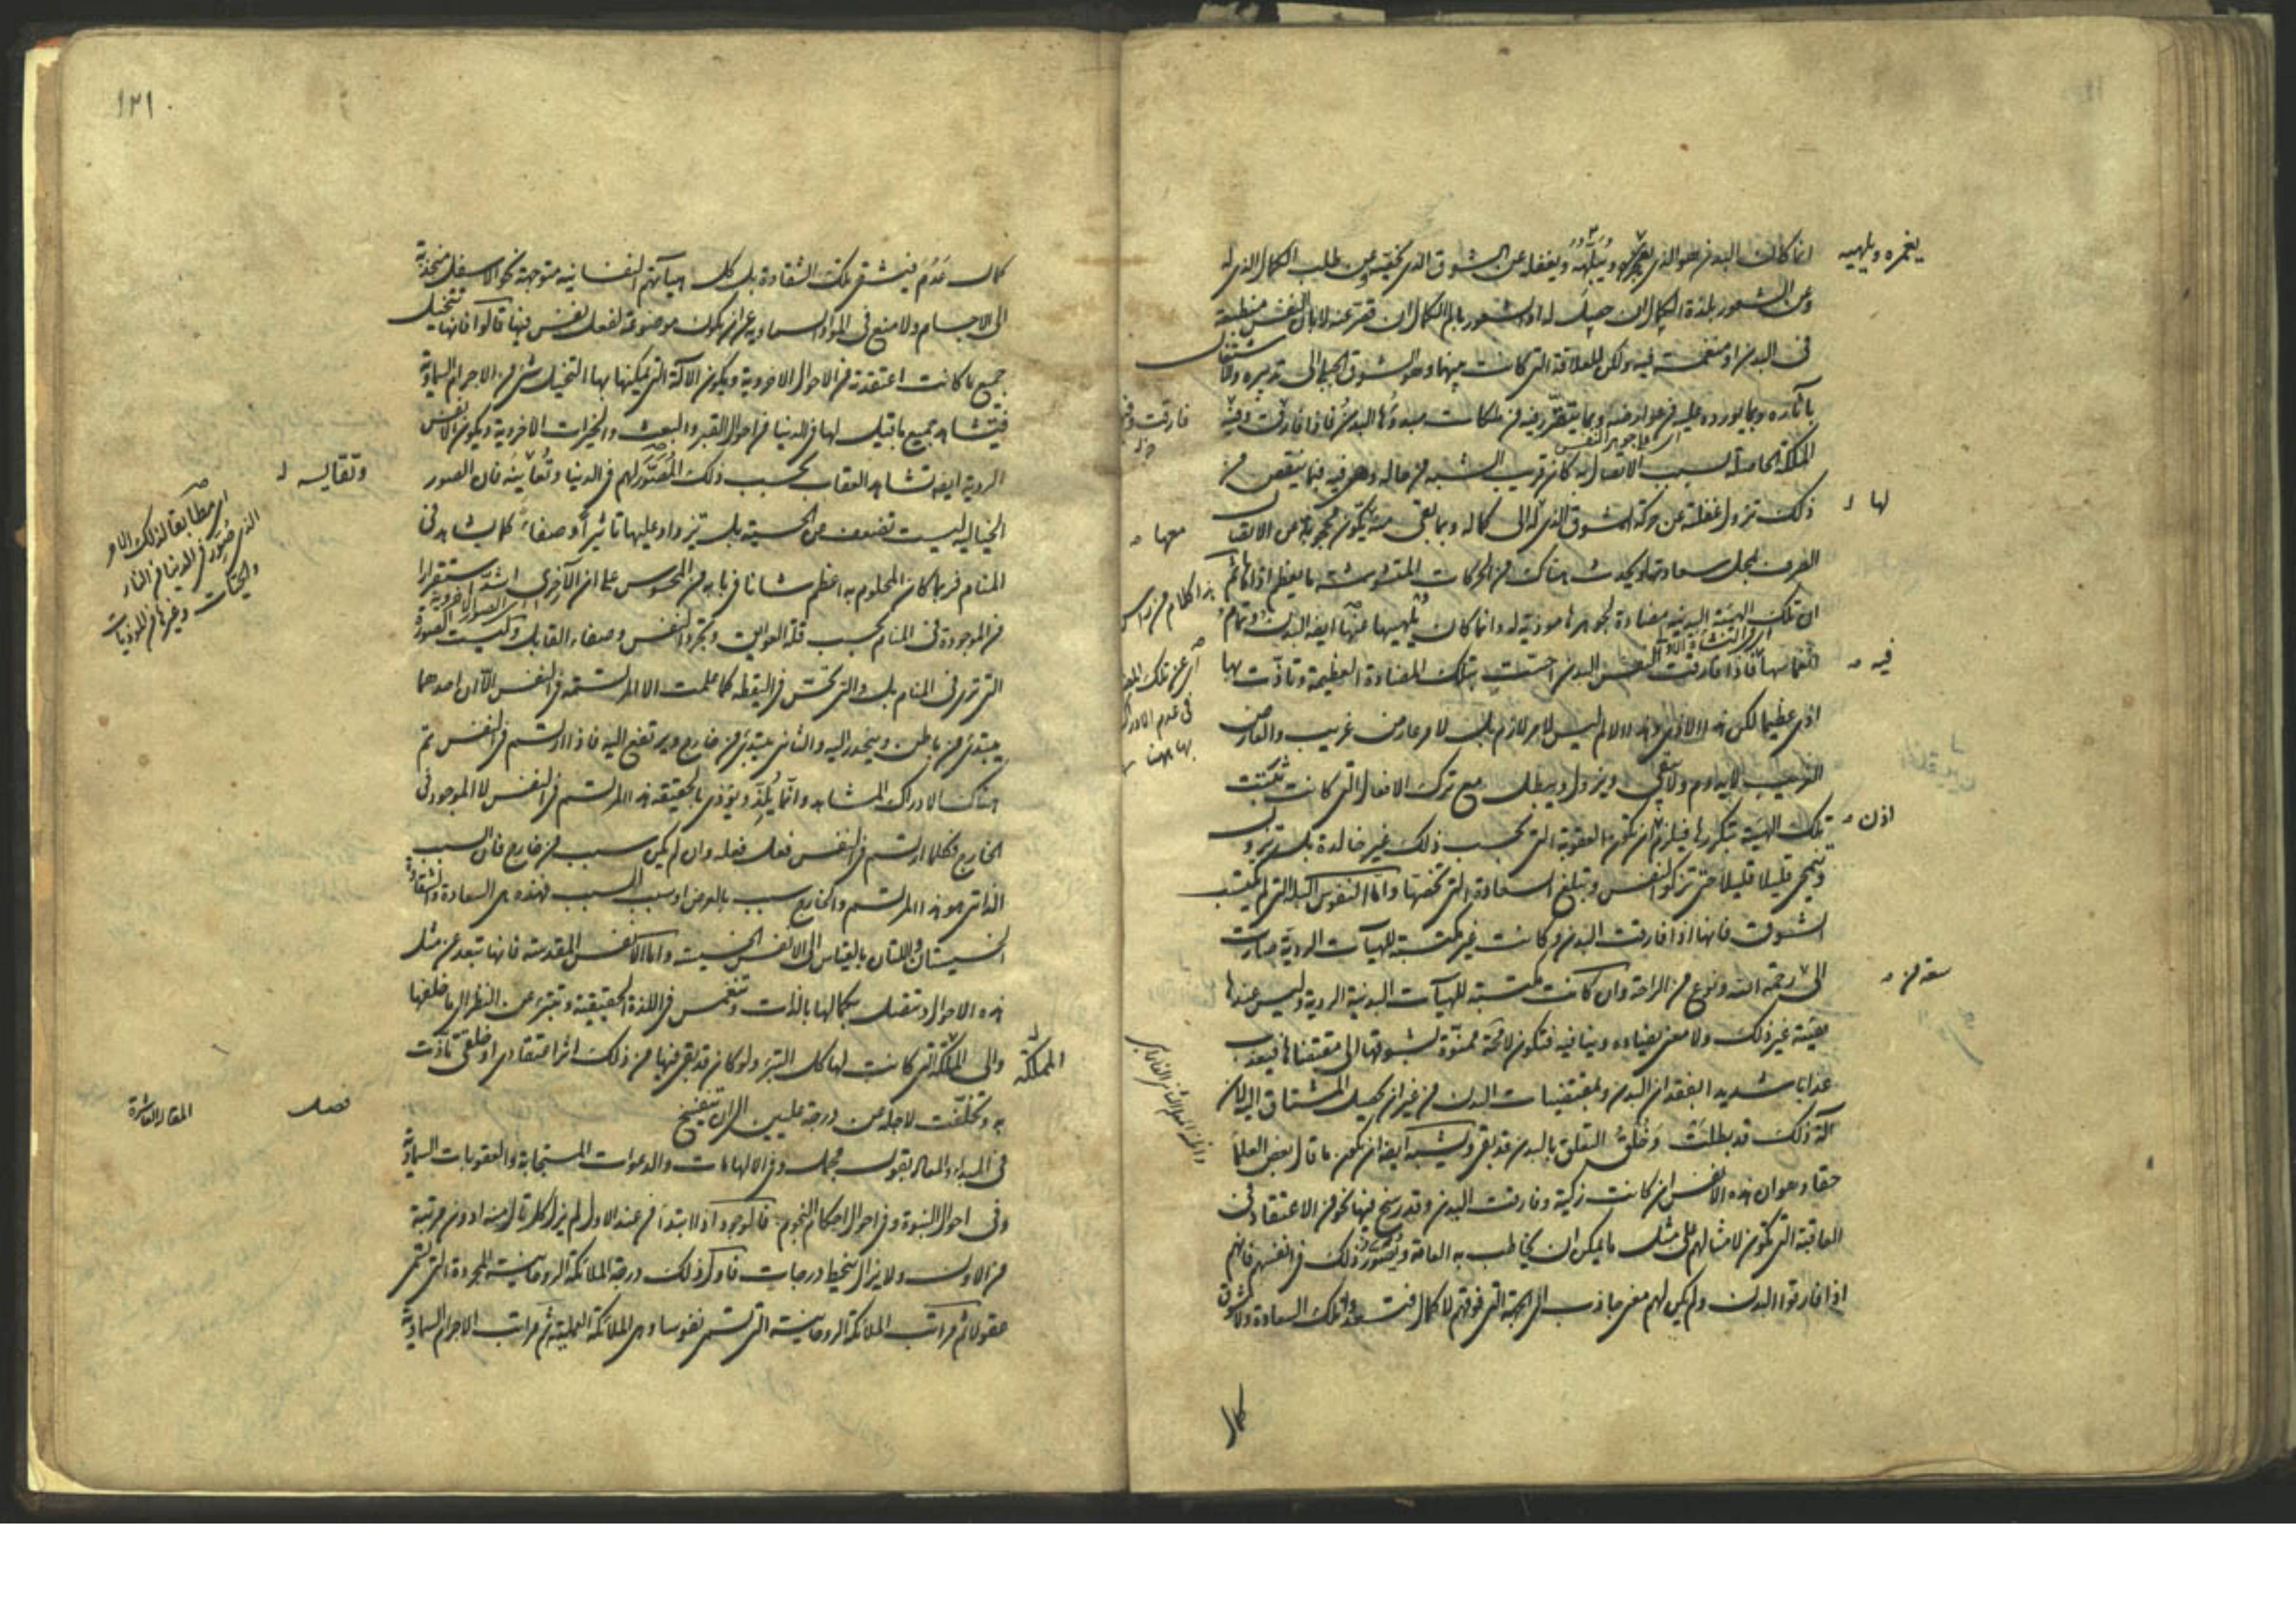 انما كانت البدن هو الذى يغمره ويلهيه ويغفله عن الشوق الذى يخصه وعن طلب الكمال الذى له
وعن الشعور بلذة الكمال ان حصل له او الشعور بالم الكمال ان قصر عنه لا بان النفس منطبعة
فى البدن او منغمسة فيه ولكن للعلاقة التى كانت بينهما وهو الشوق الجبلى الى تدبيره والاشتغال
بآثاره وبما يورده عليه من عوارضه وبما يتقرر فيه من ملكات مبدؤها البدن فاذا فارقت وفيه
الملكة الحاصلة بسبب الاتصال به كان قريب الشبه من حاله وهو فيه فبما ينقص من
ذلك تزول غفلته عن حركة الشوق الذى له الى كماله وبما يبقى منه يكون محجوبة عن الاتصال
الصرف بمحل سعادتها ويحدث هناك من الحركات المتشوشة ما يعظم اذاها ثم
ان تلك الهيئة البدنية مضادة لجوهرها موذية له وانما كان يلهيها عنها ايضا البدن وتمام
انغماسها فاذا فارقت النفس البدن احست بتلك المضادة العظيمة وتاذت بها
اذى عظيما لكن هذا الاذى وهذا الالم ليس لامر لازم بل لامر عارض غريب والعارض
الغريب لا يدوم ولا يبقى ويزول ويبطل مع ترك الافعال التى كانت تثبت
تلك الهيئة بتكررها فيلزم ان تكون العقوبة التى بحسب ذلك غير خالدة بل تزول
وتنمحى قليلا قليلا حتى تزكو النفس وتبلغ السعادة التى تخصها واما النفوس البله التى لم تكتسب
الشوق فانها اذا فارقت البدن وكانت غير مكتسبة للهيآت الردية صارت
الى رحمة الله ونوع من الراحة وان كانت مكتسبة للهيآت البدنية الردية وليس عندها
هيئة غير ذلك ولا معنى يضاده وينافيه فتكون لا محة ممنوة بشوقها الى مقتضاها فتعذب
عذابا شديدا بفقدان البدن ومقتضيات البدن من غير ان يحصل المشتاق اليه لان
آلة ذلك قد بطلت وخلق التعلق بالبدن قد بقى ويشبه ايضا ان يكون ما قال بعض العلما
حقا وهو ان هذه الانفس ان كانت زكية وفارقت البدن وقد رسخ فيها نحو من الاعتقاد فى
العاقبة التى تكون لامثالهم على مثل ما يمكن ان يخاطب به العامة ويصور ذلك فى انفسهم فانهم
اذا فارقوا البدن ولم يكن لهم معنى جاذب الى الجهة التى فوقهم لا كمال فتسعد تلك السعادة ولا شوق
كمال
يغمره ويلهيه
لها
فيه
اذن
سعة من
معها
١٢١
كمال عدم فيشقى تلك الشقاوة بل كل هيآتهم النفسانية متوجهة نحو الاسفل منجذبة
الى الاجسام ولا منع فى المواد السماوية عن ان يكون موضوعة لفعل نفس فيها قالوا فانها تتخيل
جميع ما كانت اعتقدته من الاحوال الاخروية ويكون الآلة التى يمكنها بها التخيل شئ من الاجرام السماوية
فيشاهد جميع ما قيل لها فى الدنيا من احوال القبر والبعث والخيرات الاخروية ويكون الانفس
الردية ايضا تشاهد العقاب بحسب ذلك المصور لهم فى الدنيا وتعاينه فان الصور
الخيالية ليست تضعف عن الحسية بل تزداد عليها تاثيرا وصفاء كما يشاهد فى
المنام فربما كان المحلوم به اعظم شانا فى بابه من المحسوس على ان الاخرى اشد استقرارا
من الموجودة فى المنام بحسب قلة العوايق وتجرد النفس وصفاء القابل وليست الصورة
التى ترى فى المنام بل والتى تحس فى اليقظة كما علمت الا المرتسمة فى النفس الا ان احدهما
يبتدئ من باطن وينحدر اليه والثانى يبتدئ من خارج ويرتفع اليه فاذا ارتسم فى النفس تم
هناك الادراك المشاهد وانما يلذ ويوذى بالحقيقة هذا المرتسم فى النفس لا الموجود فى
الخارج فكلما ارتسم فى النفس فعل فعله وان لم يكن سبب من خارج فان السبب
الذاتى هو هذا المرتسم والخارج سبب بالعرض او سبب السبب فهذه هى السعادة والشقاوة
الخسيستان واللتان بالقياس الى الانفس الخسيسة واما الانفس المقدسة فانها تبعد عن مثل
هذه الاحوال وتتصل بكمالها بالذات وتنغمس فى اللذة الحقيقية وتتبرء عن النظر الى ما خلفها
والى المملكة التى كانت لها كل التبرء ولو كان قد بقى فيها من ذلك اثر اعتقادى او خلقى تاذت
به وتخلفت لاجله عن درجة عليين الى ان تنفسخ
فى المبداء والمعاد بقول مجمل وفى الالهامات والدعوات المستجابة والعقوبات السماوية
وفى احوال النبوة وفى احوال احكام النجوم فالوجود اذ لا ابتدأ من عند الاول لم يزل كل تال منه ادون مرتبة
من الاول ولا يزال ينحط درجات فاول ذلك درجة الملائكة الروحانية المجردة التى تسمى
عقولا ثم مراتب الملائكة الروحانية التى تسمى نفوسا وهى الملائكة العملية ثم مراتب الاجرام السماوية
وتقاسيه
اى مطابقا لذلك الامر
الذى صور فى الدنيا من النار
المملكة
فصل
المقالة العاشرة